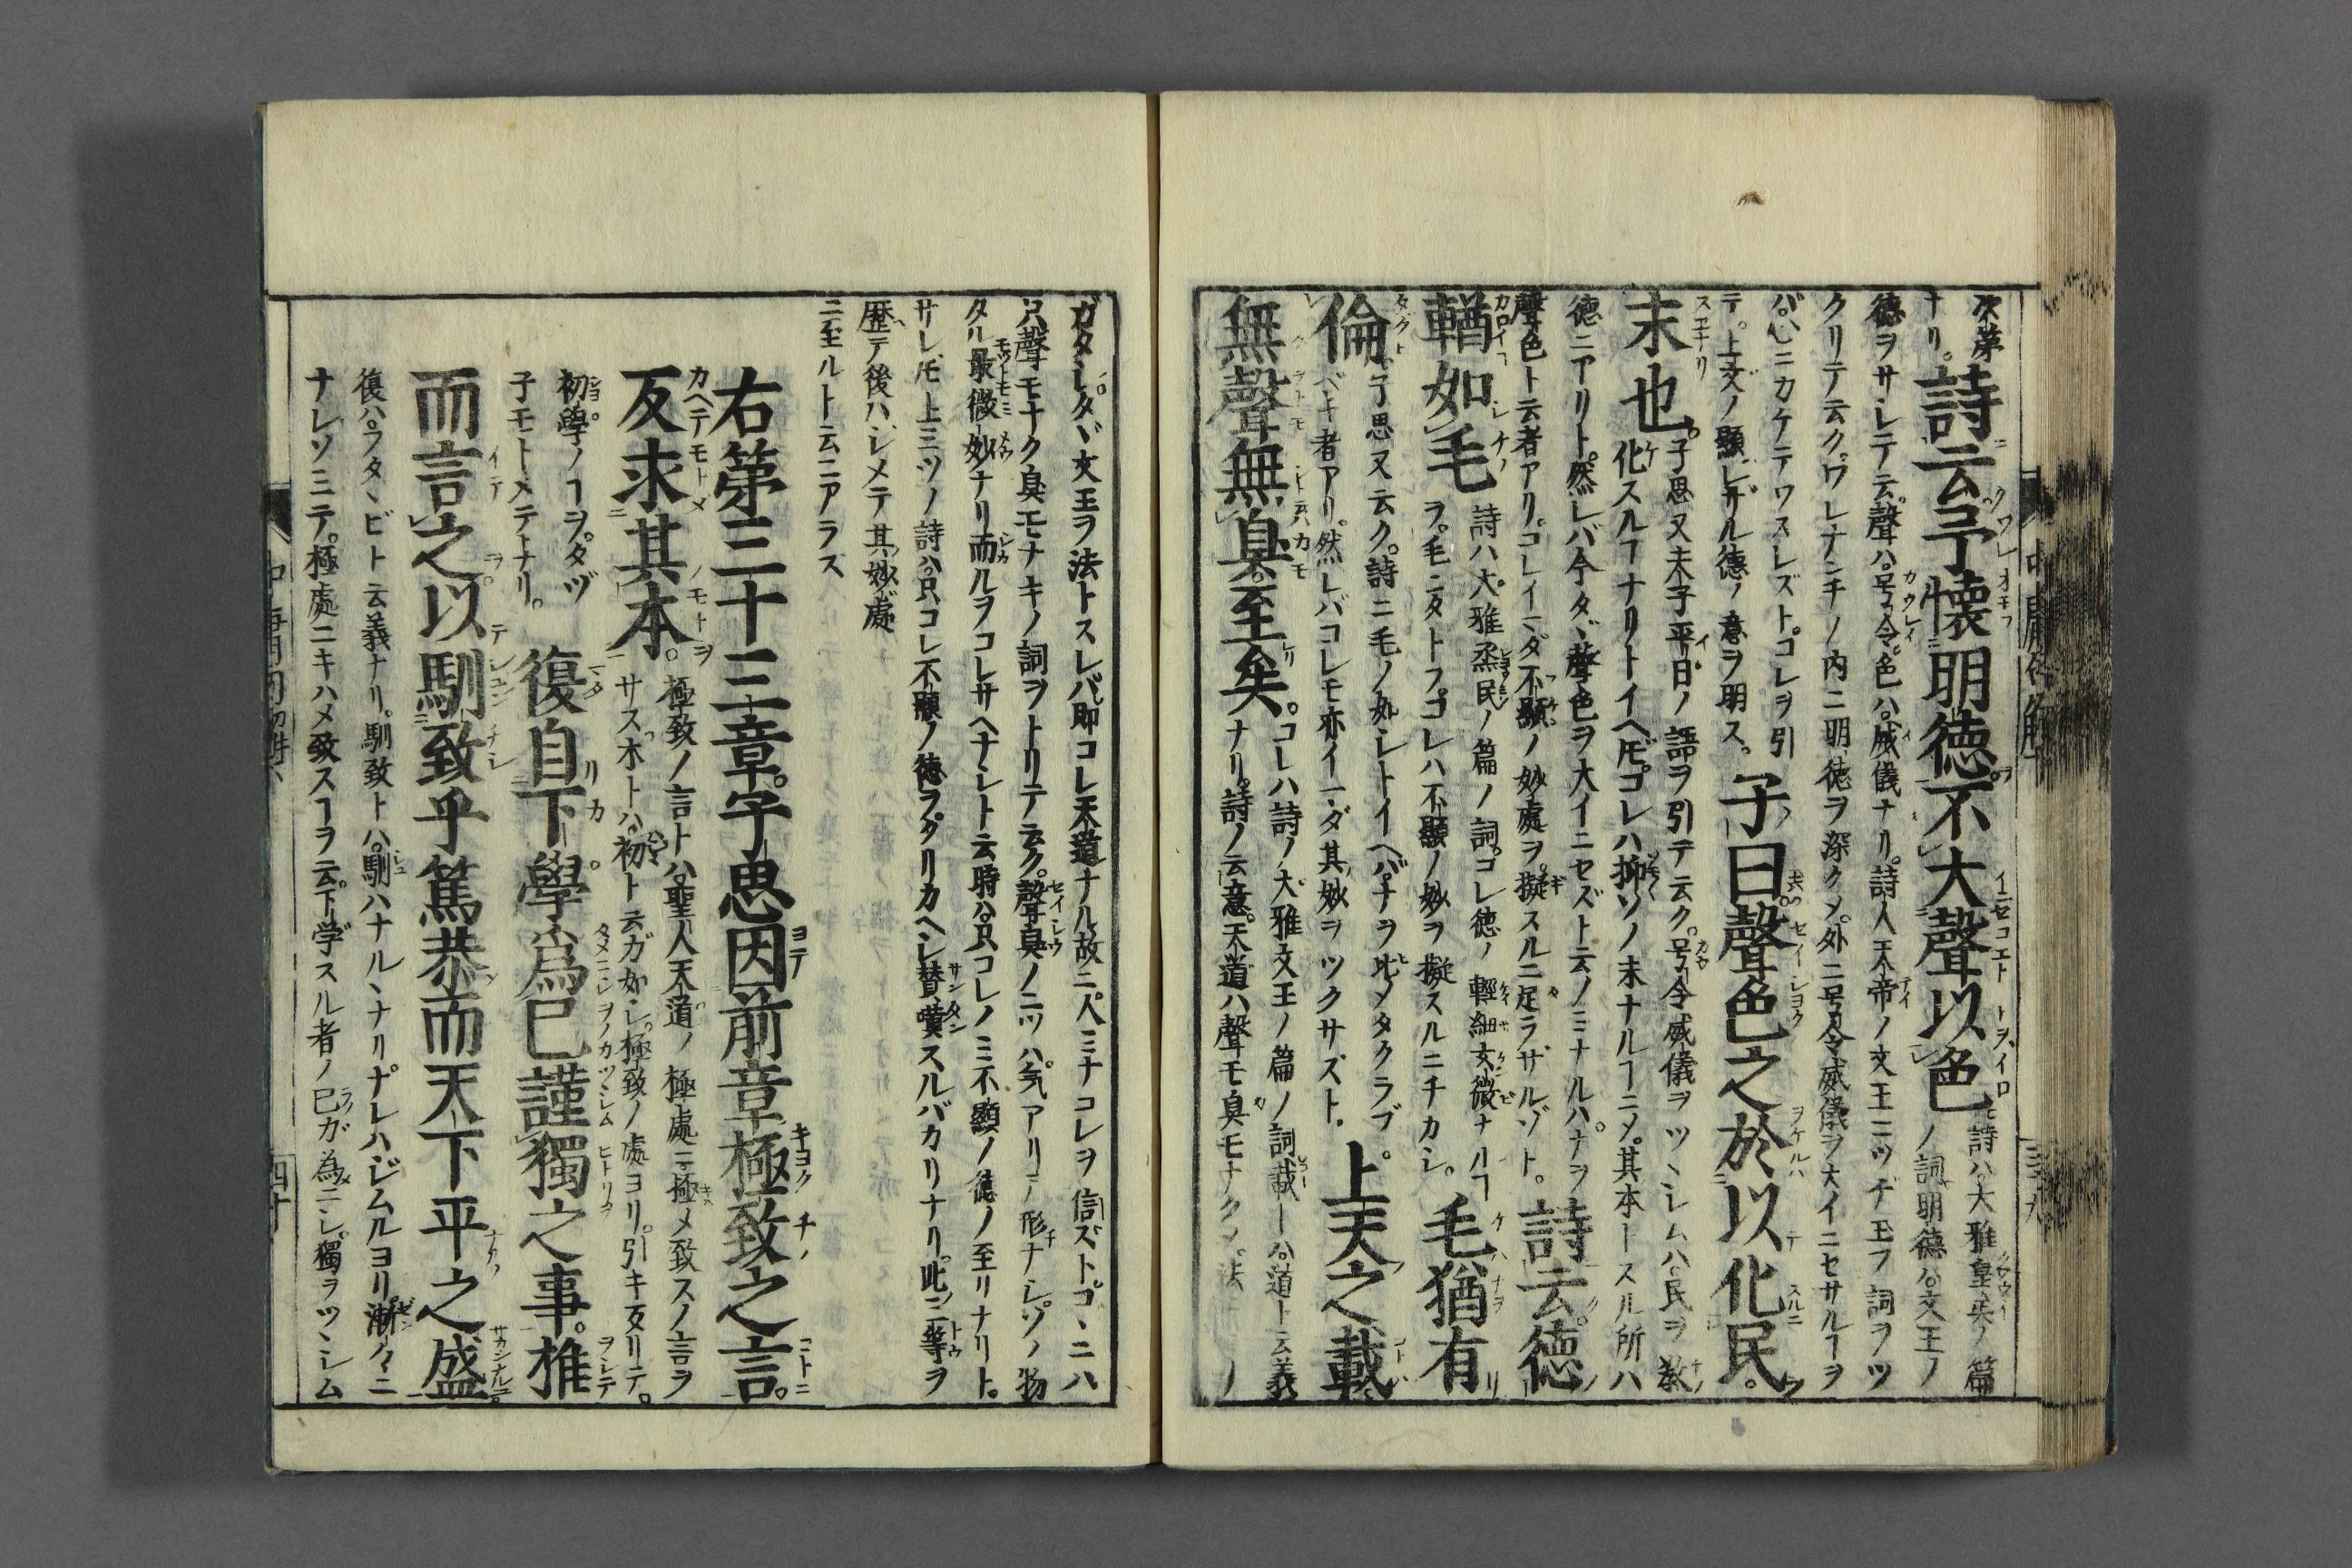 次第
ナリ。詩云予懐明徳不大聲以色詩ハ大雅皇矣ノ篇
ノ詞明徳ハ文王ノ
徳ヲサシテ云。聲ハ号令。色ハ威儀ナリ。詩人天帝ノ文王ニツゲ玉フ詞ヲツ
クリテ云ク。ワレナンチノ内ニ明徳ヲ深クメ。外ニ号令威儀ヲ大イニセサルヿヲ
バ。心ニカケテワスレズト。コレヲ引
テ。上文ノ顯レザル徳ノ意ヲ明ス。子曰聲色之於以化民。
末也。子思又夫子平日ノ語ヲ引テ云ク。号令威儀ヲツヽシムハ。民ヲ教
化スルヿナリトイヘ𪜈。コレハ抑ソノ末ナルヿニメ。其本トスル所ハ
徳ニアリト。然レバ今タヾ聲色ヲ大イニセズト云ノミナルハ。ナヲ
聲色ト云者アリ。コレイマダ不顯ノ妙處ヲ擬スルニ足ラザルゾト。詩云。徳
輶如毛詩ハ大雅烝民ノ篇ノ詞。コレ徳ノ輕細玄微ナルヿ
ヲ。毛ニタトフ。コレハ不顯ノ妙ヲ擬スルニチカシ。毛猶有
倫子思又云ク。詩ニ毛ノ如シトイヘバ。ナヲ比メタクラブ
ベキ者アリ。然レバコレモ亦イマダ其妙ヲツクサズト。上天之載
無聲無臭。至矣。コレハ詩ノ大雅文王ノ篇ノ詞。載トハ道ト云義
ナリ。詩ノ云意。天道ハ聲モ臭モナクメ。法ノ
ガタシ。タヾ文王ヲ法トスレバ。即コレ天道ナル故ニ。人ミナコレヲ信ズト。コヽニハ
只聲モナク臭モナキノ詞ヲトリテ云ク。聲臭ノ二ツハ。気アリテ形ナシ。ソノ物
タル最微妙ナリ而ルヲコレサヘナシト云時ハ。只コレノミ不顯ノ徳ノ至リナリト。
サレ𪜈上三ツノ詩ハ。只コレ不顯ノ徳ヲクリカヘシ賛嘆スルバカリナリ。此三等ヲ
歴テ後ハシメテ其妙處
ニ至ルト云ニアラス
右第三十三章。子思因前章極致之言。
反求其本。極致ノ言トハ。聖人天道ノ極處ニ極メ致スノ言ヲ
サス本トハ。初ト云ガ如シ。極致ノ處ヨリ。引キ反リテ。
初學ノヿヲ。タヅ
子モトメテナリ。復自下學爲己謹獨之事。推
而言之以馴致乎篤恭而天下平之盛
復ハ。フタヽビト云義ナリ。馴致トハ。馴ハナルヽナリ。ナレハジムルヨリ。漸々ニ
ナレソミテ。極處ニキハメ致スヿヲ云。下学スル者ノ己ガ為ニシ。獨ヲツヽシム
四十